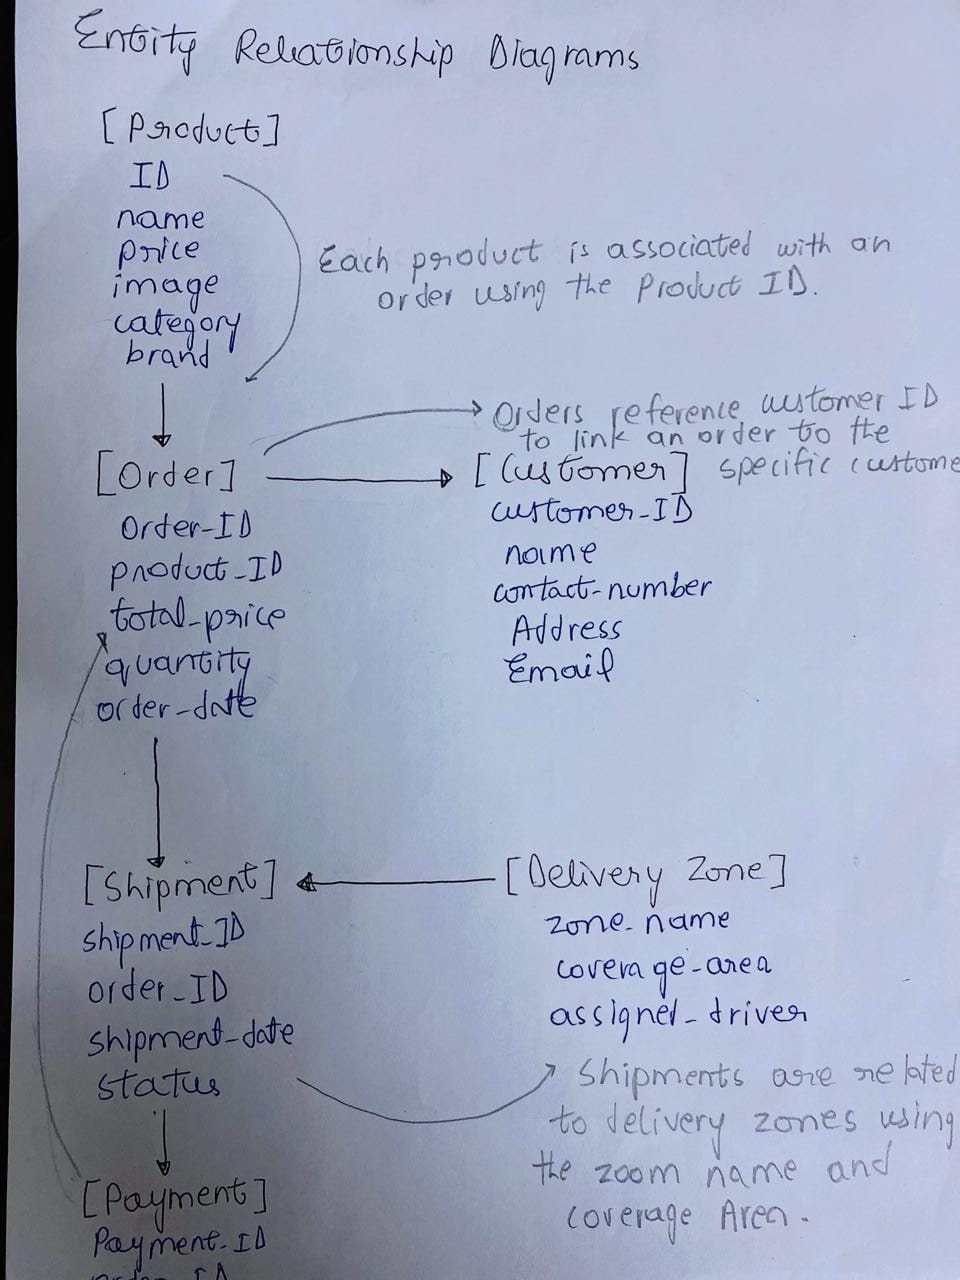 Entity Relationship Diagrams
[Product]
ID
name
price
image
category
brand
Each product is associated with an
order using the Product ID.
Orders reference customer ID
to link an order to the
specific custome
[Order]
Order_ID
product_ID
total_price
quantity
order_date
[Customer]
customer_ID
name
contact_number
Address
Email
[Shipment]
shipment_ID
order_ID
shipment_date
status
[Delivery Zone]
zone_name
coverage_area
assigned_driver
Shipments are related
to delivery zones using
the zoom name and
coverage Area.
[Payment]
Payment_ID
order_ID